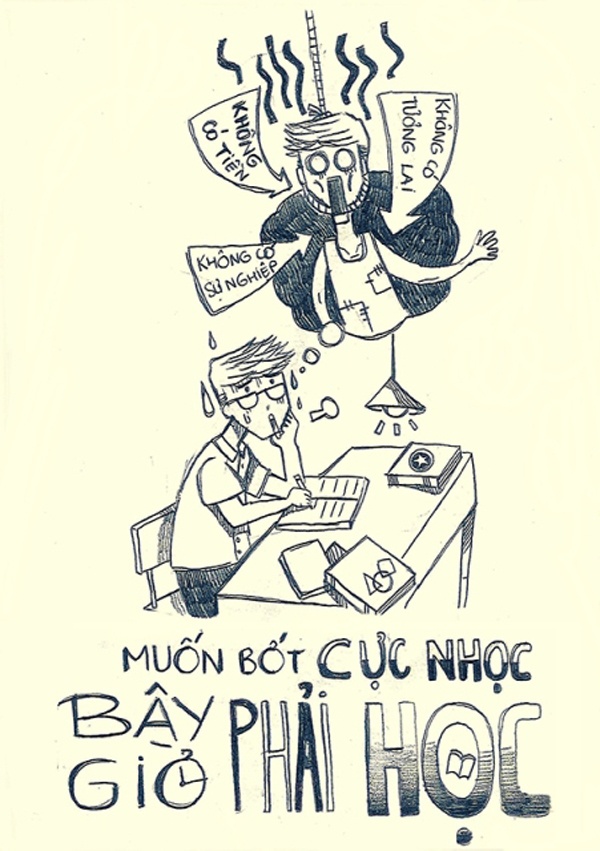 KHÔNG
CÓ TIỀN
KHÔNG CÓ
TƯỞNG LAI
KHÔNG CÓ
SỰ NGHIỆP
MUỐN BỚT CỰC NHỌC
BÂY GIỜ PHẢI HỌC